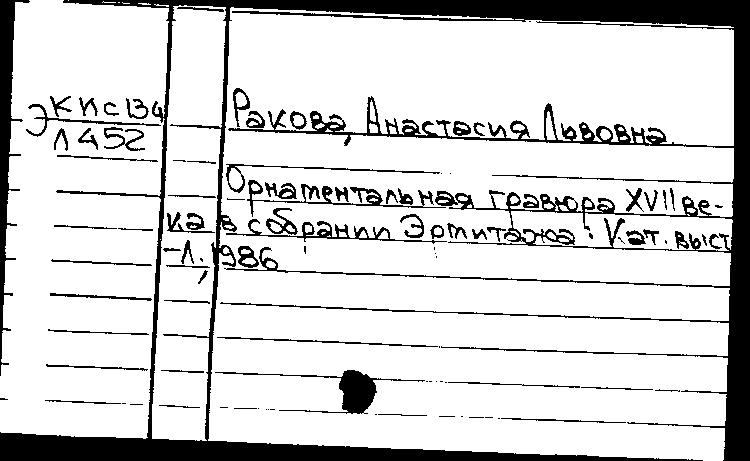 Э ККис134
Л452
Ракова, Анастасия Львовна
Орнаментальная гравюра XVII ве-
ка в собрании Эрмитажа : Кат. выст
-Л., 1986